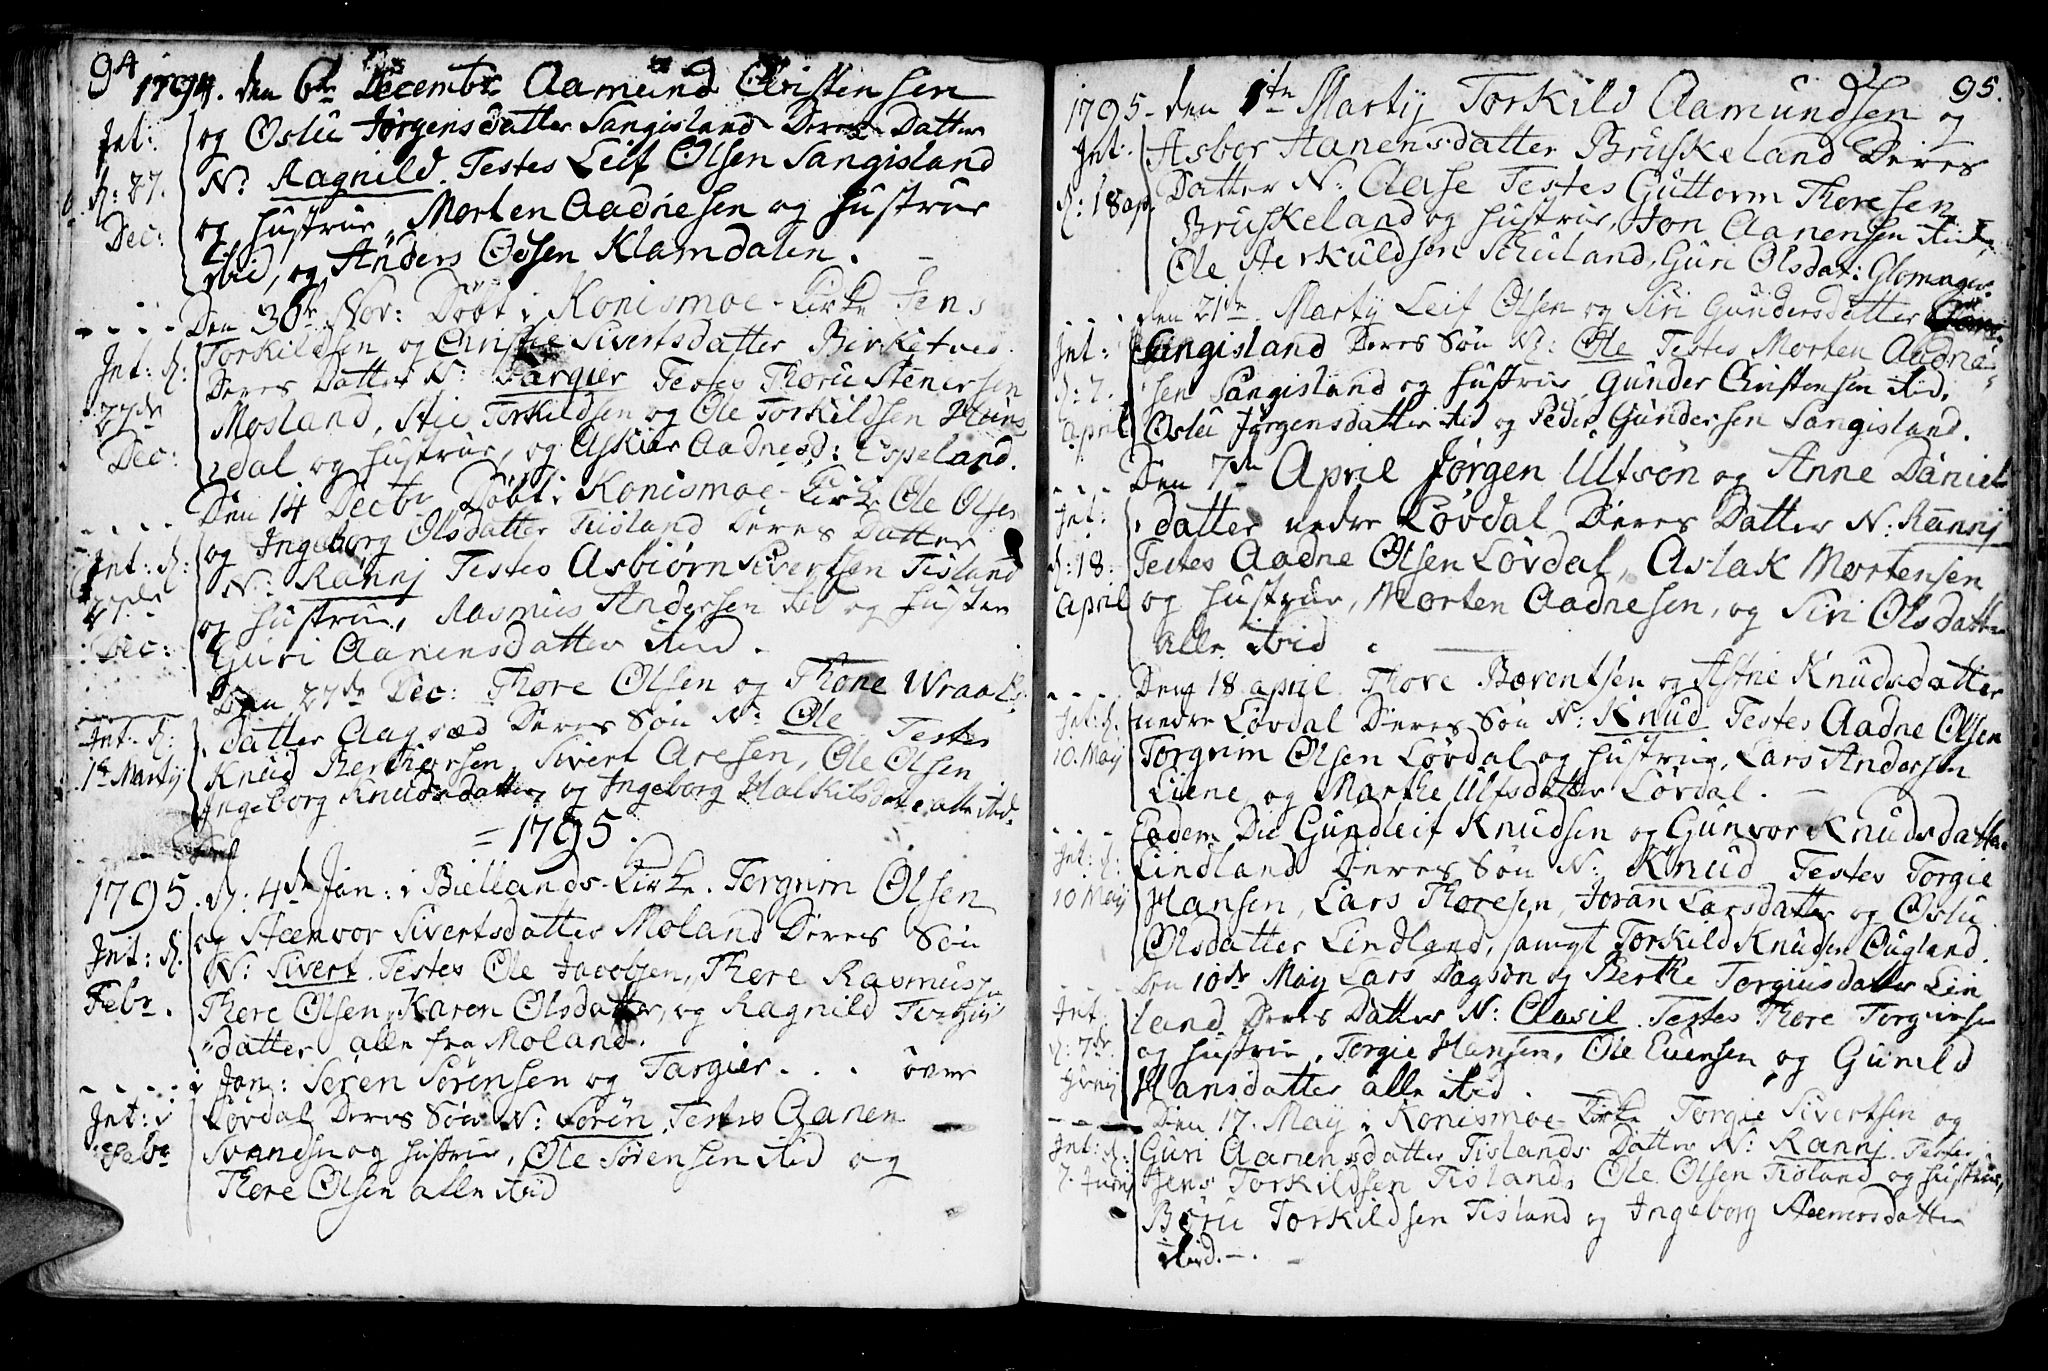 94
1794. den 6te Decembr Aamund Christensen
Int:
og Oslu Jørgensdatter Sangisland Deres Datter
d: 27.
N: Ragnild. Testes Leif Olsen Sangisland
Dec:
og Hustrue, Morten Aadnesen og Hustrue
ibid, og Anders Olsen Klamdalen.
Den 30te Nov: Døbt i Konismoe-Kirke Jens
Int: d:
Torkildsen og Christie Sivertsdatter Birketved
27de
Deres Datter N: Targier Testes Thoru Stenersen
Mosland, Torkildsen og Ole Torkildsen
Dec:
dal og Hustrue, og Askier Aadnesd: Espeland.
Den 14 Decbr Døbt i Konismoe-Kirke Ole Olsen
og Ingeborg Olsdatter Tisland Deres Datter
Int: d:
N: Rannj Testes Asbiørn Sivertsen Tisland
27de
og Hustrue, Rasmus Andersen ibid og Hustru
Dec:
Guri Aanensdatter ibid.
Den 27de Dec: Thore Olsen og Thone Wraals
Int. d:
datter Aagsæd Deres Søn N: Ole Testes
1te Martij
Knud Berthersen, Sivert Aresen, Ole Olsen
Ingeborg Knudsdatter, og Ingeborg alle ibid.
= 1795.
1795. d: 4de Jan: i Biellands-Kirke. Torgrim Olsen
Int: d.
og Steenvor Sivertsdatter Moland Deres Søn
N: Sivert. Testes Ole Jacobsen, Thore Rasmus
Febr.
Thore Olsen, Karen Olsdatter, og Ragnild Torgius
datter alle fra Moland.
i Jan: Søren Sørensen og Targier . . . øvre
Int: i
Løvdal Deres Søn N: Søren. Testes Aanen
Febr
Svenesn og Hustrue, Ole Sørensen ibid og
Thore Olsen alle ibid
95.
1795. den 1te Martij Torkild Aamundsen og
Int.
Asbor Aanensdatter Bruskeland Deres
d: 18 ap.
Datter N: Aase Testes Guttorm Thoresen
Bruskeland og Hustrue, Jon Aanensen ibid,
Ole Aerkuldsen, Guri Olsdat: Glomager
den 21de Martij Leif Olsen og Siri Gundersdatter
Int:
Sangisland Deres Søn N: Ole Testes Morten Aadne
d: 7.
sen Sangisland og Hustrue, Gunder Christensen ibid,
April
Oslu Jørgensdatter ibid og Peder Gundersen Sangisland.
Den 7de April Jørgen Ulfsøn og Anne Daniel
Int:
datter nedre Løvdal Deres Datter N: Rannj
d: 18.
Testes Aadne Olsen Løvdal, Aslak Mortensen
April
og Hustrue, Morten Aadnesen, og Siri Olsdatter
alle ibid.
Den 18 april Thore Bærentsen og Astrie Knudsdatter
Int: d:
nedre Løvdal Deres Søn N: Knud Testes Aadne Olsen
10. May
Torgrim Olsen Løvdal og Hustrue, Lars Andersen
Liene og Marthe Ulfsdatter Løvdal.
Eodem Die Gundleif Knudsen og Gunvor Knudsdatter
Int: d:
Lindland Deres Søn N: Knud Testes Torgie
10 Maij
Hansen, Lars Thoresen, Joran Larsdatter og Oslu
Olsdatter Lindland, samt Torkild Knudsen Øugland.
Den 10de May Lars Dagsøn og Berthe Torgiusdatter Lin
Int.
land Deres Datter N: Aasil. Testes Thore Torgiusen
d: 7de
og Hustrue, Torgie Hansen, Ole Evensen og Gunild
Junij
Hansdatter alle ibid.
Den 17. Maij i Konismoe-Kirke Torgie Sivertsen og
Int: d:
Guri Aanensdatter Tislands Datter N: Rannj. Testes
7. Junij
Jens Torkildsen Tisland, Ole Olsen Tisland og Hustrue,
Børu Torkildsen Tisland og Ingeborg Steenersdatter
ibid.